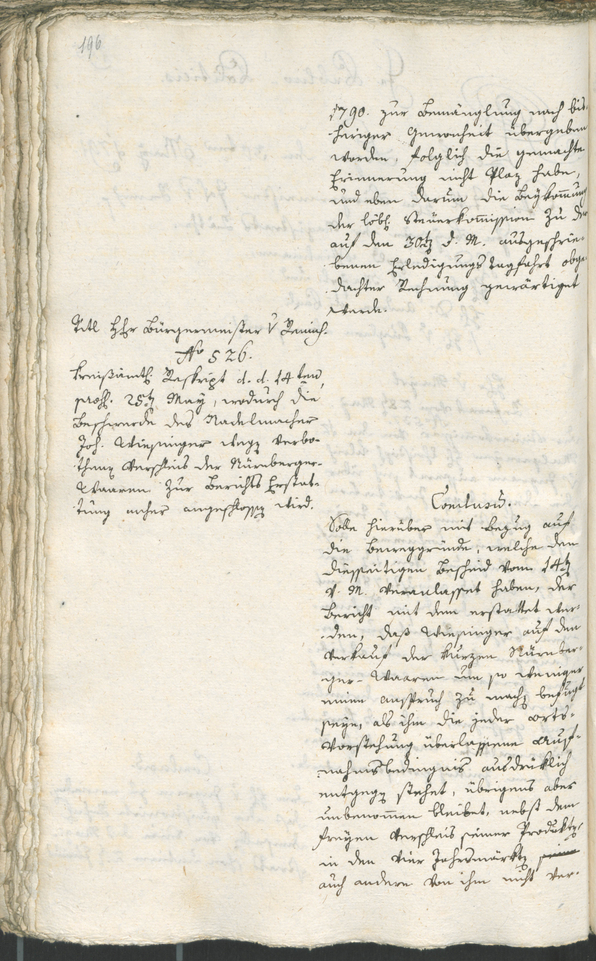 196
1790. zur Bemänglung nach bis-
heriger Gewonheit übergeben
worden, folglich die gemachte
Erinnerung nicht Plaz habe,
und eben darum die Beykommung
der löbl: Steuerkommission zu der
auf den 30tn d. M. ausgeschrie-
benen Erledigungs Tagfahrt obge-
dachter Rechnung gewärtiget
werde.
Titl HHr Bürgermeister v
No 526.
Kreisämtl: Reskript d. d. 14ten,
präs: 25tn May, wodurch die
Beschwerde des Nadelmacher
Joh. Wiesinger wegen verbo-
thenen Verschleis der Nürnberger-
Waaren zur Berichts Erstat-
tung anher angeschlossen wird.
Conclusum.
Solle hierüber mit Bezug auf
die Beweggründe, welche den
diesseitigen Bescheid vom 14tn
v. M. veranlasset haben, der
Bericht mit dem erstattet wer-
den, daß Wiesinger auf den
Verkauf der kurzen Nürnber-
ger-Waaren um so weniger
einen Anspruch zu machen befugt
seye, als ihm die jeder Orts-
Vorstehung überlassene Auf-
nahmsbedingnis ausdrüklich
entgegen stehet, übrigens aber
unbenommen bleibet, nebst dem
freyen Verschleis seiner Produkten
in den vier Jahrsmärkten
auch andere von ihm nicht ver-